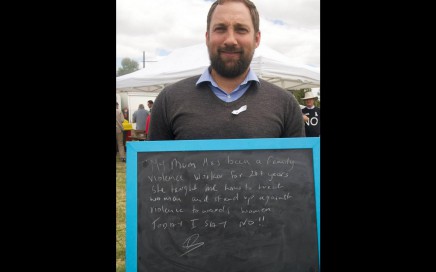 My Mum Has been a Family
violence worker for 20+ years
She taught me how to treat
women and stand up against
violence towards women
TODAY I SAY NO!!
NO